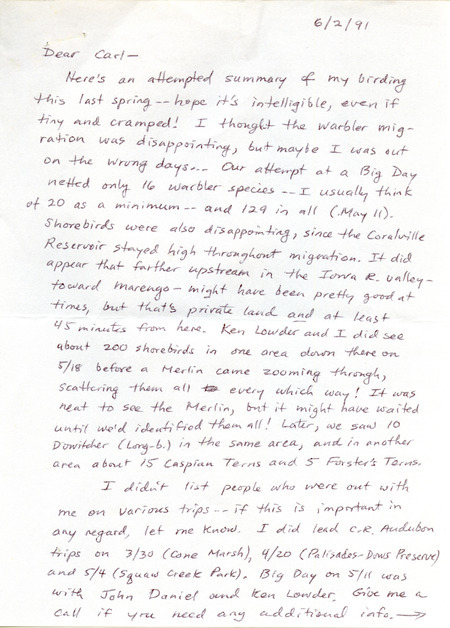 6/2/91
Dear Carl—
Here's an attempted summary of my birding
this last spring -- hope it's intelligible, even if
tiny and cramped! I thought the warbler mig-
ration was disappointing, but maybe I was out
on the wrong days... Our attempt at a Big Day
netted only 16 warbler species -- I usually think
of 20 as a minimum -- and 129 in all (May 11).
Shorebirds were also disappointing, since the Coralville
Reservoir stayed high throughout migration. It did
appear that farther upstream in the Iowa R. valley-
toward Marengo - might have been pretty good at
times, but that's private land and at least
45 minutes from here. Ken Lowder and I did see
about 200 shorebirds in one area down there on
5/18 before a Merlin came zooming through,
scattering them all to every which way! It was
neat to see the Merlin, but it might have waited
until we'd identified them all! Later, we saw 10
Dowitcher (Long-b.) in the same area, and in another
area about 15 Caspian Terns and 5 Forster's Terns.
I didn't list people who were out with
me on various trips -- if this is important in
any regard, let me know. I did lead C.R. Audubon
trips on 3/30 (Cone Marsh), 4/20 (Palisades-Dows Preserve)
and 5/4 (Squaw Creek Park). Big Day on 5/11 was
with John Daniel and Ken Lowder. Give me a
call if you need any additional info. →